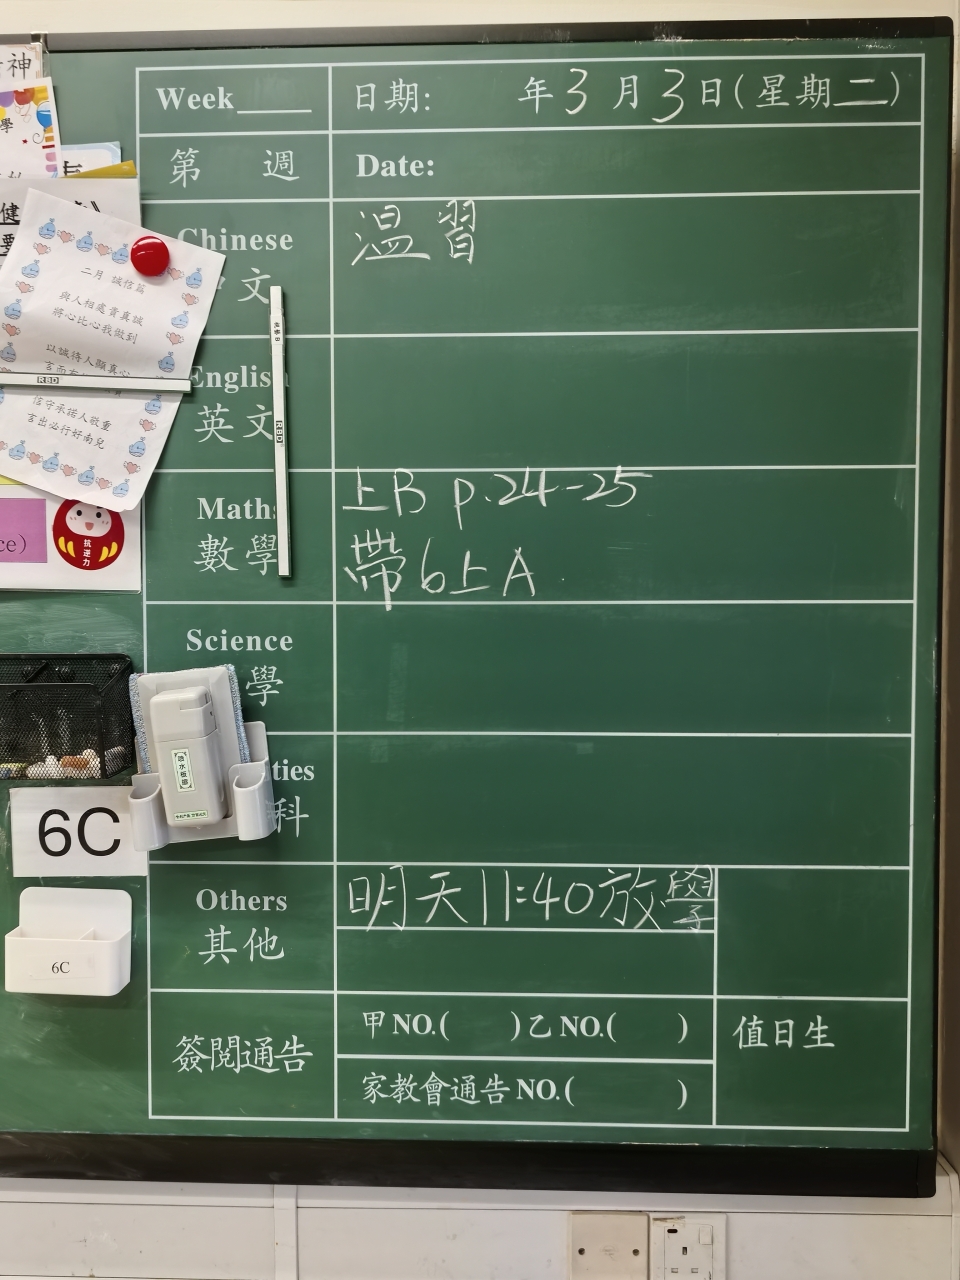 神
學
健
Week
日期: 年3月3日(星期二)
第 週
Date:
Chinese
文
溫習
English
英文
Maths
數學
上B p.24-25
帶6上A
Science
學
ties
科
Others
其他
明天11:40放學
簽閱通告
甲NO.( )乙NO.( )
家教會通告NO.( )
值日生
二月 誠信篇
與人相處貴真誠
將心比心我做到
以誠待人顯真心
言而有
信守承諾人敬重
言出必行好南兒
RBD
RBD
ce)
抗逆力
6C
6C